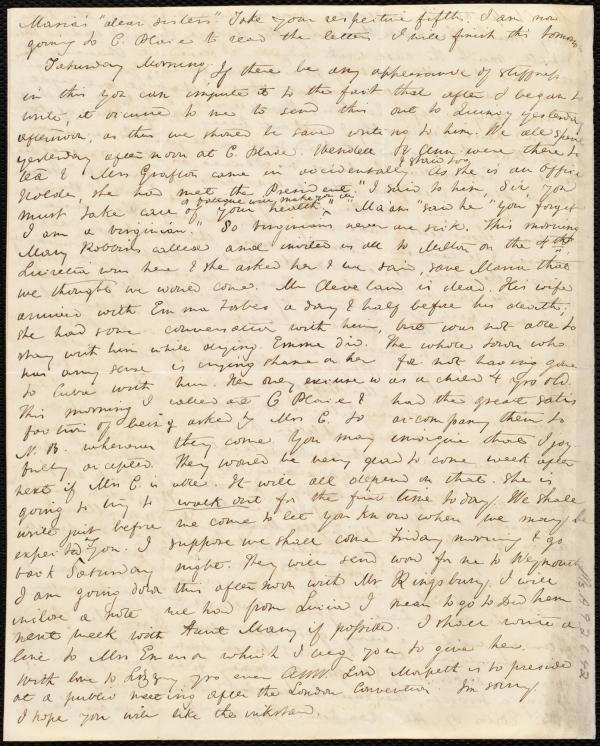 Maria's "dear sisters". Take your respective fifths. I am now
going to C. Place to read the letters I will finish this tomorrow
Saturday Morning. If there be any appearance of stiffness
in this you can impute it to the fact that after I began to
write, it occurred to me to send this out to Quincy yesterday
afternoon, as thus we should be saved writing to him. We all spent
yesterday afternoon at C. Place. Wendell & Ann were there to
tea & Mrs Grafton came in accidentally. As she is an office
holder, she had met the President, "I said to him, Sir you
must take care of your health" "Ma'am" said he "you forget
a fatigue will make you
I am a Virginian." So Virginians never are sick. This morning
Mary Robbins called and invited us all to Milton on the 4th
Lucretia was here & she asked her & we said, save Maria that
we thought we would come. Mr Cleveland is dead. His wife
arrived with Emma Forbes a day & half before his death,
she had some conversation with him, but was not able to
stay with him while dying. Emma did. The whole town who
has any sense is crying shame on her for not having gone
to Cuba with him. Her only excuse was a child 4 yrs old.
This morning I called at C Place & had the great satis
faction of being asked by Mrs C. to accompany them to
N. B. whenever they come You may imagine that I joy-
fully accepted. They would be very glad to come week after
next if Mrs C. is able. It will all depend on that. She is
going to try to walk out for the first time to day. We shall
write just before we come to let you know when we may be
expected by you. I suppose we shall come Friday morning & go
back Saturday night. They will send word for me to Weymouth
I am going down this afternoon with Mr Kingsbury. I will
inclose a note we had from Lucia I mean to go to Dedham
next week with Aunt Mary if possible. I shall write a
line to Mrs Emerson which I beg you to give her.
With love to Lizzy yrs ever AWW. Lord Morpeth is to preside
at a public meeting after the London Convention. I'm sorry
I hope you will like the inkstand.